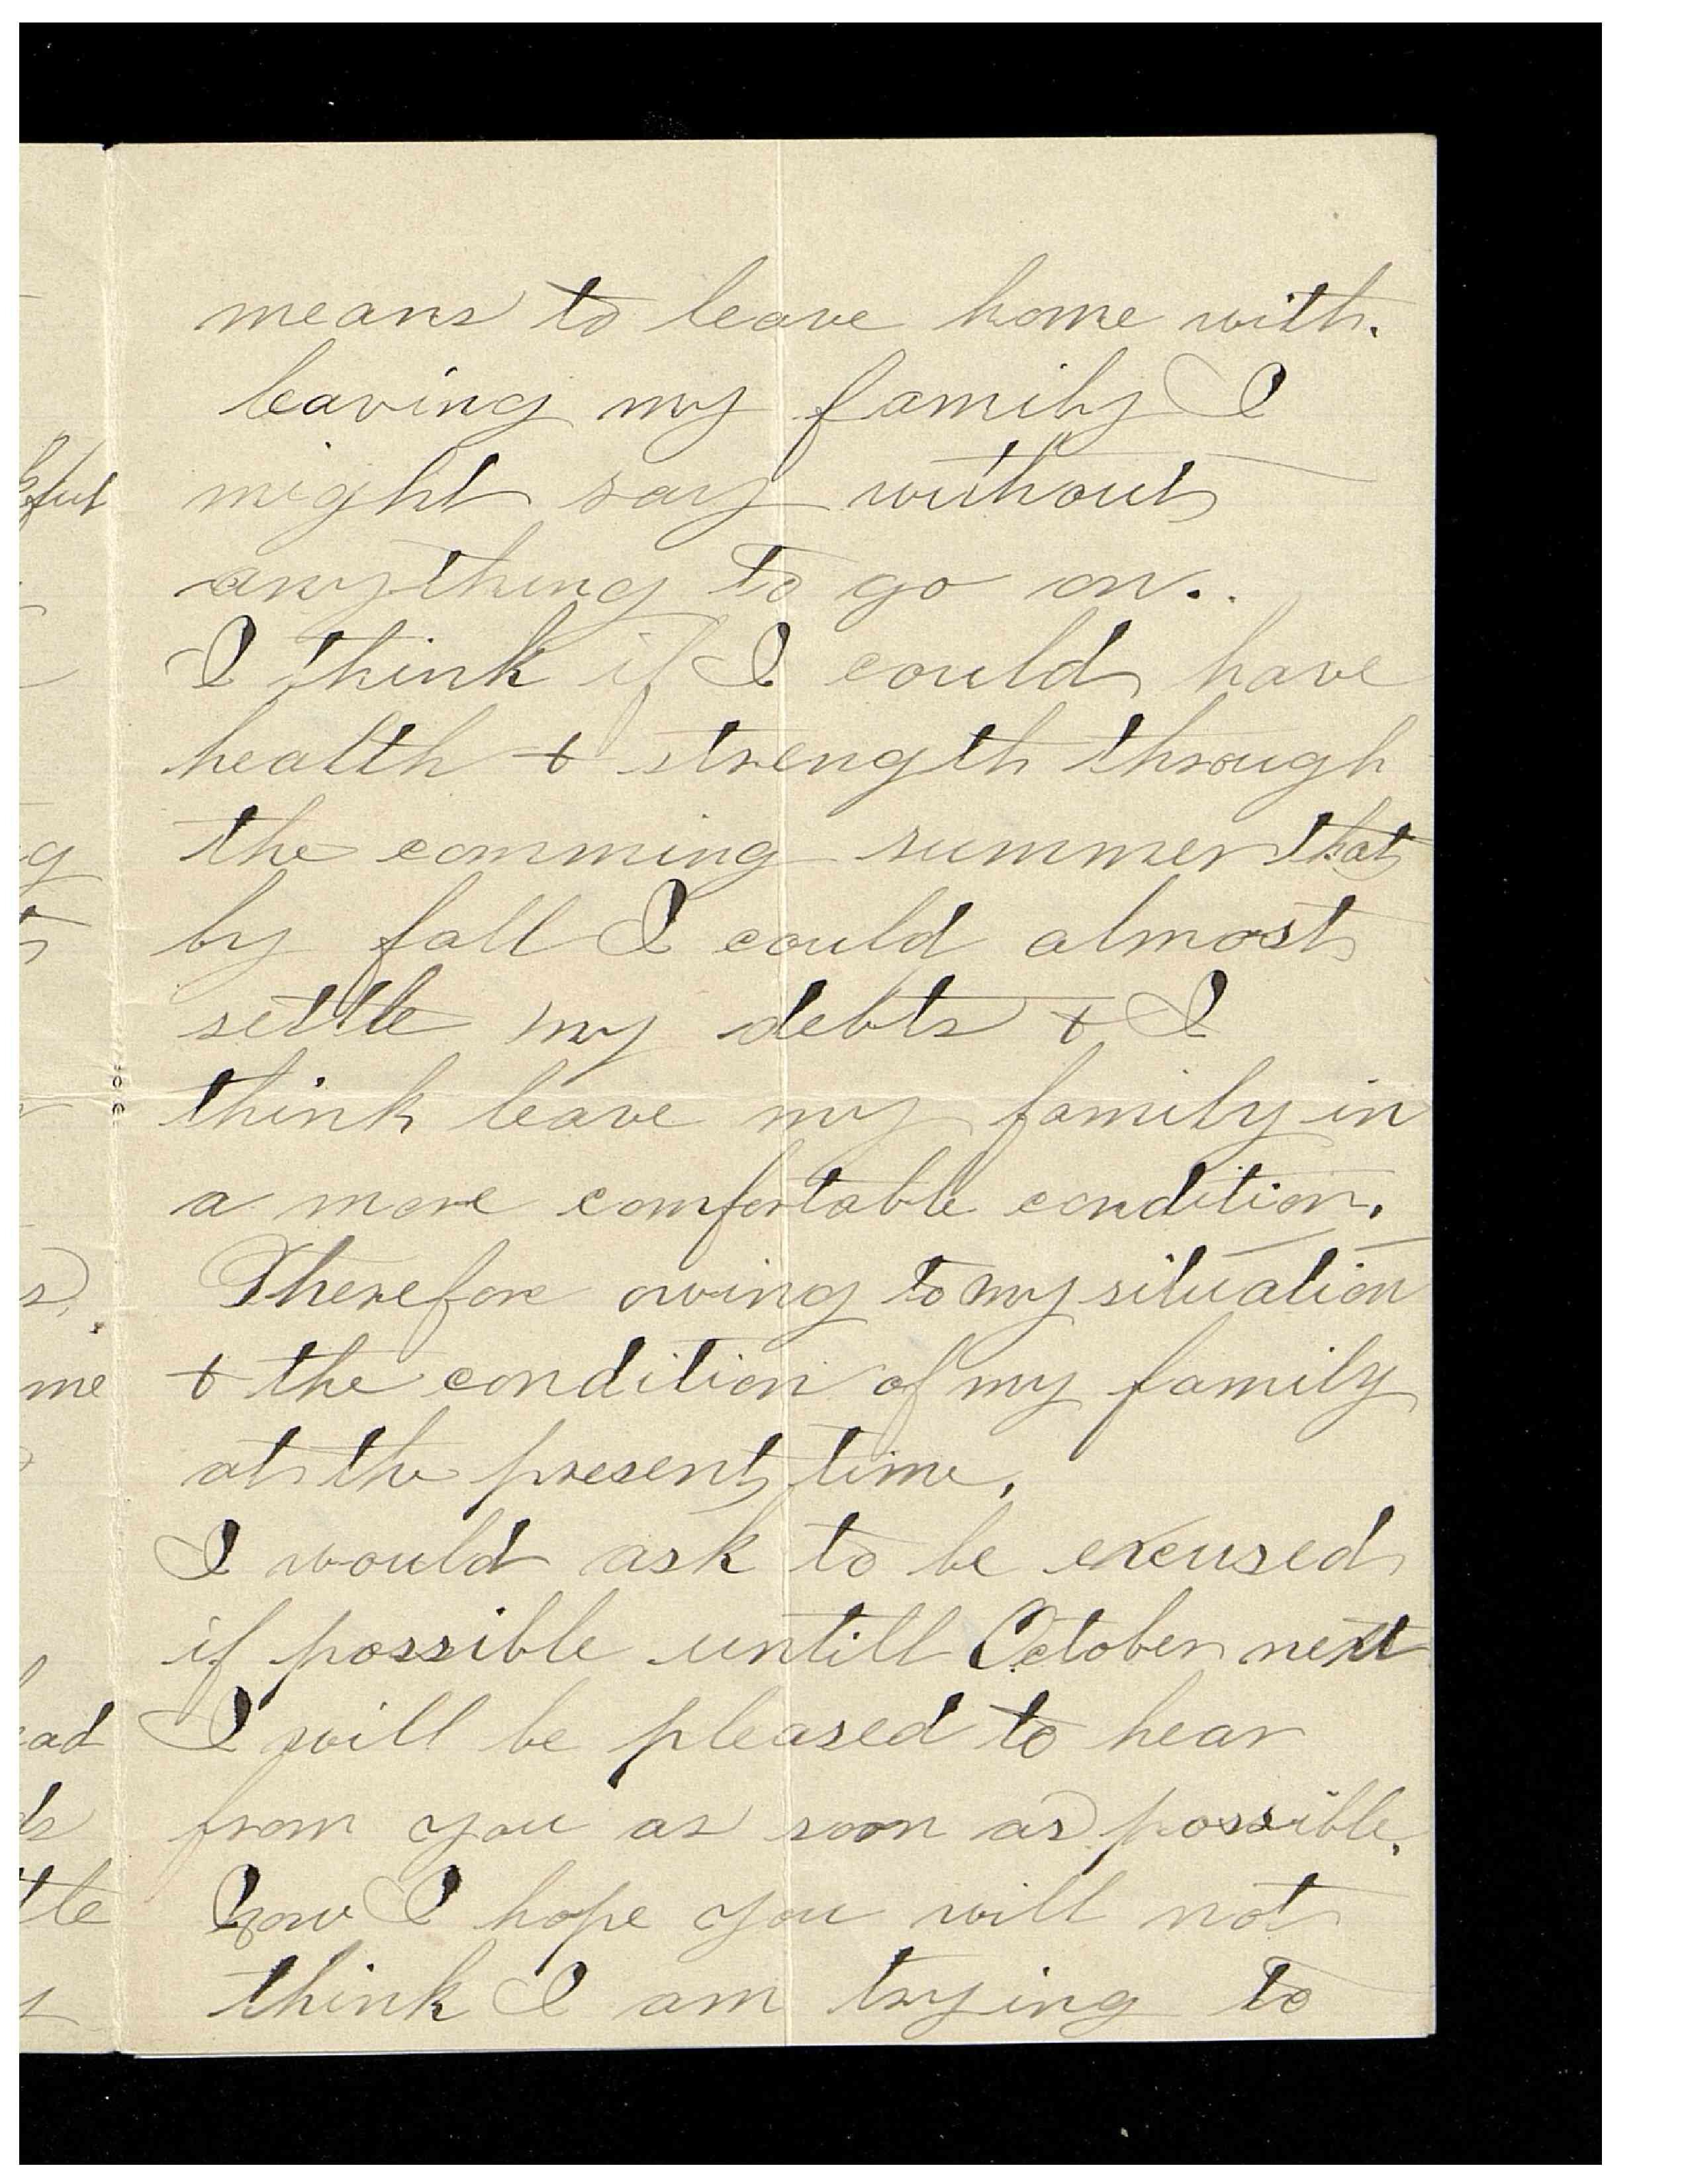 means to leave home with.
leaving my family I
might say without
anything to go on..
I think if I could have
health & strength through
the comming summer that
by fall I could almost
settle my debts & I
think leave my family in
a more comfortable condition.
Therefore owing to my situation
& the condition of my family
at the present time.
I would ask to be excused
if possible untill October next
I will be pleased to hear
from you as soon as possible.
Now I hope you will not
think I am trying to